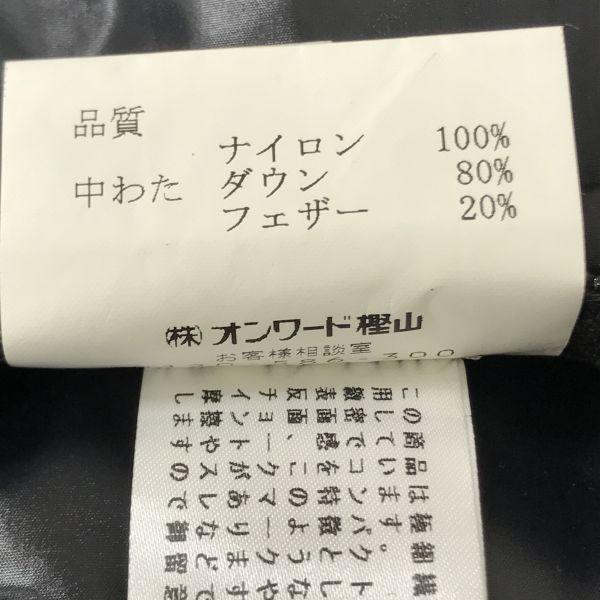 品質
ナイロン 100%
中わた ダウン 80%
フェザー 20%
㈱オンワード樫山
お客様相談室
この商品は極細繊
用しています。
緻密でコンパクト
表面感を特徴とし
反面、このような
チョークマークや
イントがあります
摩擦やスレなどで
しますので御留意